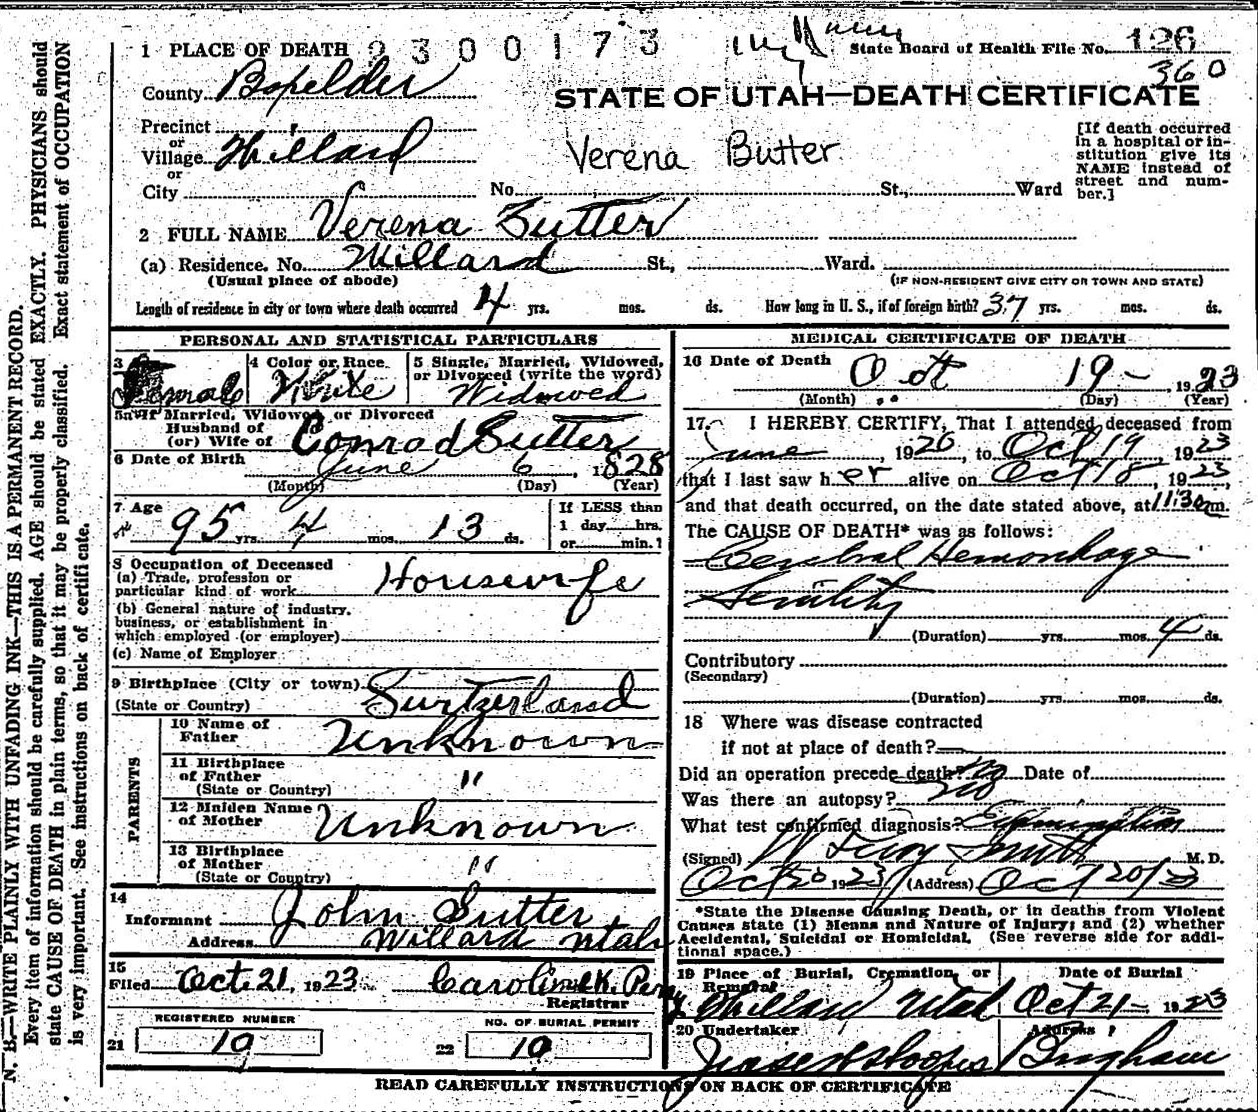 N. B.—WRITE PLAINLY WITH UNFADING INK—THIS IS A PERMANENT RECORD.
Every item of information should be carefully supplied. AGE should be stated EXACTLY. PHYSICIANS should
state CAUSE OF DEATH in plain terms, so that it may be properly classified. Exact statement of OCCUPATION
is very important. See instructions on back of certificate.
1 PLACE OF DEATH 2300173 State Board of Health File No. 126
360
County Boxelder
STATE OF UTAH—DEATH CERTIFICATE
Precinct
or
Village Willard
or
City No. St., Ward
Verena Butter
[If death occurred
in a hospital or in-
stitution give its
NAME instead of
street and num-
ber.]
2 FULL NAME Verena Sutter
(a) Residence. No. Willard St., Ward.
(Usual place of abode) (IF NON-RESIDENT GIVE CITY OR TOWN AND STATE)
Length of residence in city or town where death occurred 4 yrs. mos. ds. How long in U. S., if of foreign birth? 37 yrs. mos. ds.
PERSONAL AND STATISTICAL PARTICULARS
3 Female
4 Color or Race White
5 Single, Married, Widowed,
or Divorced (write the word)
Widowed
5a If Married, Widowed, or Divorced
Husband of
(or) Wife of Conrad Sutter
6 Date of Birth June 6, 1828
(Month) (Day) (Year)
7 Age 95 yrs. 4 mos. 13 ds.
If LESS than
1 day hrs.
or min.?
8 Occupation of Deceased
(a) Trade, profession or
particular kind of work Housewife
(b) General nature of industry,
business, or establishment in
which employed (or employer)
(c) Name of Employer
9 Birthplace (City or town)
(State or Country) Surtzerland
PARENTS
10 Name of
Father Unknown
11 Birthplace
of Father "
(State or Country)
12 Maiden Name
of Mother Unknown
13 Birthplace
of Mother "
(State or Country)
14
Informant John Sutter
Address Willard Utah
15
Filed Oct. 21, 1923 Caroline K. Perry
Registrar
REGISTERED NUMBER
21 19
NO. OF BURIAL PERMIT
22 19
MEDICAL CERTIFICATE OF DEATH
16 Date of Death Oct 19 - , 1923
(Month) (Day) (Year)
17. I HEREBY CERTIFY, That I attended deceased from
June, 1920, to Oct 19, 1923
that I last saw her alive on Oct 18, 1923,
and that death occurred, on the date stated above, at 1130 m.
The CAUSE OF DEATH* was as follows:
Cerebral Hemorrhage
Senility
(Duration) yrs. mos. 4 ds.
Contributory
(Secondary)
(Duration) yrs. mos. ds.
18 Where was disease contracted
if not at place of death?
Did an operation precede death? No Date of
Was there an autopsy? No
What test confirmed diagnosis Examination
(Signed) W Leroy Smith M. D.
Oct 20 1923 (Address) Oct 20/23
*State the Disease Causing Death, or in deaths from Violent
Causes state (1) Means and Nature of Injury; and (2) whether
Accidental, Suicidal or Homicidal. (See reverse side for addi-
tional space.)
19 Place of Burial, Cremation, or
Removal Willard Utah
Date of Burial
Oct 21 - 1923
20 Undertaker
Address
Brigham
READ CAREFULLY INSTRUCTIONS ON BACK OF CERTIFICATE